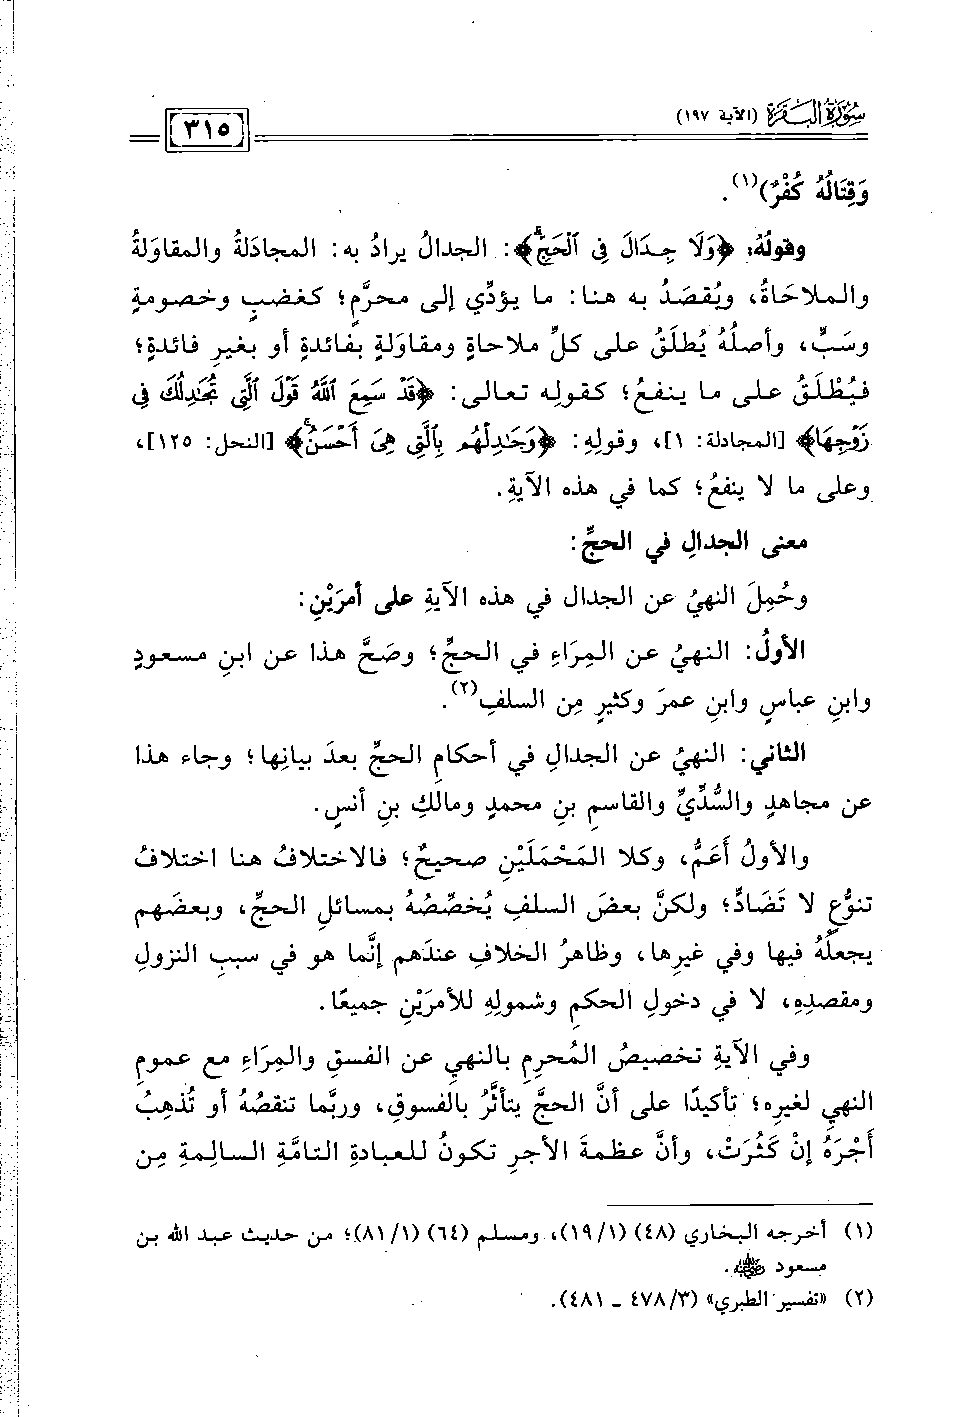 سورة البقرة (الآية ١٩٧)
٣١٥
وَقِتَالُهُ كُفْرٌ)(١).
وقولُهُ: ﴿وَلَا جِدَالَ فِي ٱلْحَجِّ﴾: الجدالُ يرادُ به: المجادَلةُ والمقاوَلةُ
والملاحَاةُ، ويُقصَدُ به هنا: ما يؤدِّي إلى محرَّمٍ؛ كغضبٍ وخصومةٍ
وسَبٍّ، وأصلُهُ يُطلَقُ على كلِّ ملاحاةٍ ومقاوَلةٍ بفائدةٍ أو بغيرِ فائدةٍ؛
فيُطْلَقُ على ما ينفعُ؛ كقولِه تعالى: ﴿قَدْ سَمِعَ ٱللَّهُ قَوْلَ ٱلَّتِي تُجَٰدِلُكَ فِي
زَوْجِهَا﴾ [المجادلة: ١]، وقولِهِ: ﴿وَجَٰدِلْهُم بِٱلَّتِي هِيَ أَحْسَنُ﴾ [النحل: ١٢٥]،
وعلى ما لا ينفعُ؛ كما في هذه الآيةِ.
معنى الجدالِ في الحجِّ:
وحُمِلَ النهيُ عن الجدال في هذه الآيةِ على أمرَيْنِ:
الأولُ: النهيُ عن المِرَاءِ في الحجِّ؛ وصَحَّ هذا عن ابنِ مسعودٍ
وابنِ عباسٍ وابنِ عمرَ وكثيرٍ مِن السلفِ(٢).
الثاني: النهيُ عن الجدالِ في أحكامِ الحجِّ بعدَ بيانِها؛ وجاء هذا
عن مجاهدٍ والسُّدِّيِّ والقاسمِ بنِ محمدٍ ومالكِ بنِ أنسٍ.
والأولُ أعَمُّ، وكلا المَحْمَلَيْنِ صحيحٌ؛ فالاختلافُ هنا اختلافُ
تنوُّعٍ لا تَضَادٍّ؛ ولكنَّ بعضَ السلفِ يُخصِّصُهُ بمسائلِ الحجِّ، وبعضَهم
يجعلُهُ فيها وفي غيرِها، وظاهرُ الخلافِ عندَهم إنَّما هو في سببِ النزولِ
ومقصدِهِ، لا في دخولِ الحكمِ وشمولِهِ للأمرَيْنِ جميعًا.
وفي الآيةِ تخصيصُ المُحرِمِ بالنهيِ عن الفسقِ والمِرَاءِ مع عمومِ
النهيِ لغيرِه؛ تأكيدًا على أنَّ الحجَّ يتأثَّرُ بالفسوقِ، وربَّما تنقصُهُ أو تُذهِبُ
أَجْرَهُ إنْ كَثُرَتْ، وأنَّ عظمةَ الأجرِ تكونُ للعبادةِ التامَّةِ السالِمةِ مِن
(١) أخرجه البخاري (٤٨) (١/ ١٩)، ومسلم (٦٤) (١/ ٨١)؛ من حديث عبد الله بن
مسعود رضي الله عنه.
(٢) «تفسير الطبري» (٣/ ٤٧٨ ـ ٤٨١).